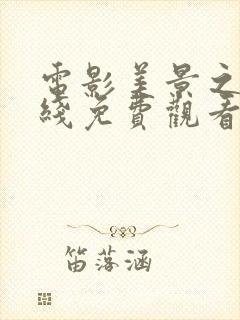 電影美景之
綫免費觀看
笛落涵